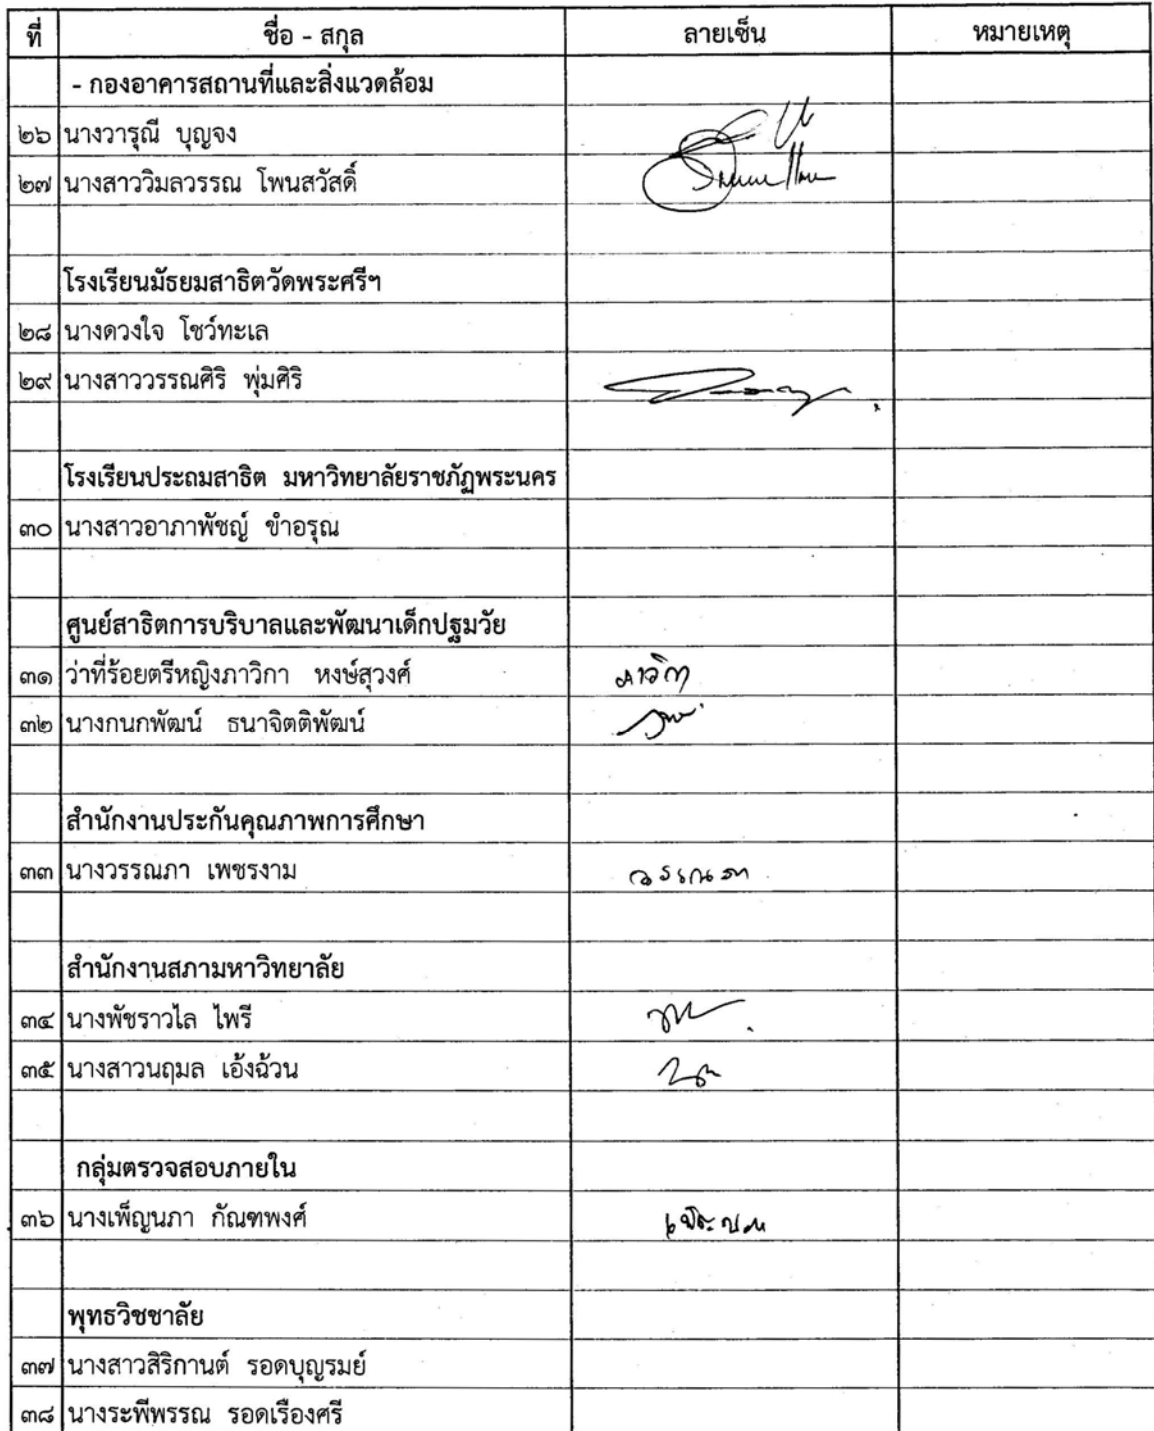 ที่ ชื่อ - สกุล ลายเซ็น หมายเหตุ
- กองอาคารสถานที่และสิ่งแวดล้อม
๒๖ นางวารุณี บุญจง
๒๗ นางสาววิมลวรรณ โพนสวัสดิ์
โรงเรียนมัธยมสาธิตวัดพระศรีฯ
๒๘ นางดวงใจ โชว์ทะเล
๒๙ นางสาววรรณศิริ พุ่มศิริ
โรงเรียนประถมสาธิต มหาวิทยาลัยราชภัฏพระนคร
๓๐ นางสาวอาภาพัชญ์ ขำอรุณ
ศูนย์สาธิตการบริบาลและพัฒนาเด็กปฐมวัย
๓๑ ว่าที่ร้อยตรีหญิงภาวิกา หงษ์สุวงศ์ ภาวิกา
๓๒ นางกนกพัฒน์ ธนาจิตติพัฒน์
สำนักงานประกันคุณภาพการศึกษา
๓๓ นางวรรณภา เพชรงาม วรรณภา
สำนักงานสภามหาวิทยาลัย
๓๔ นางพัชราวไล ไพรี
๓๕ นางสาวนฤมล เอ้งฉ้วน
กลุ่มตรวจสอบภายใน
๓๖ นางเพ็ญนภา กัณฑพงศ์
พุทธวิชชาลัย
๓๗ นางสาวสิริกานต์ รอดบุญรมย์
๓๘ นางระพีพรรณ รอดเรืองศรี